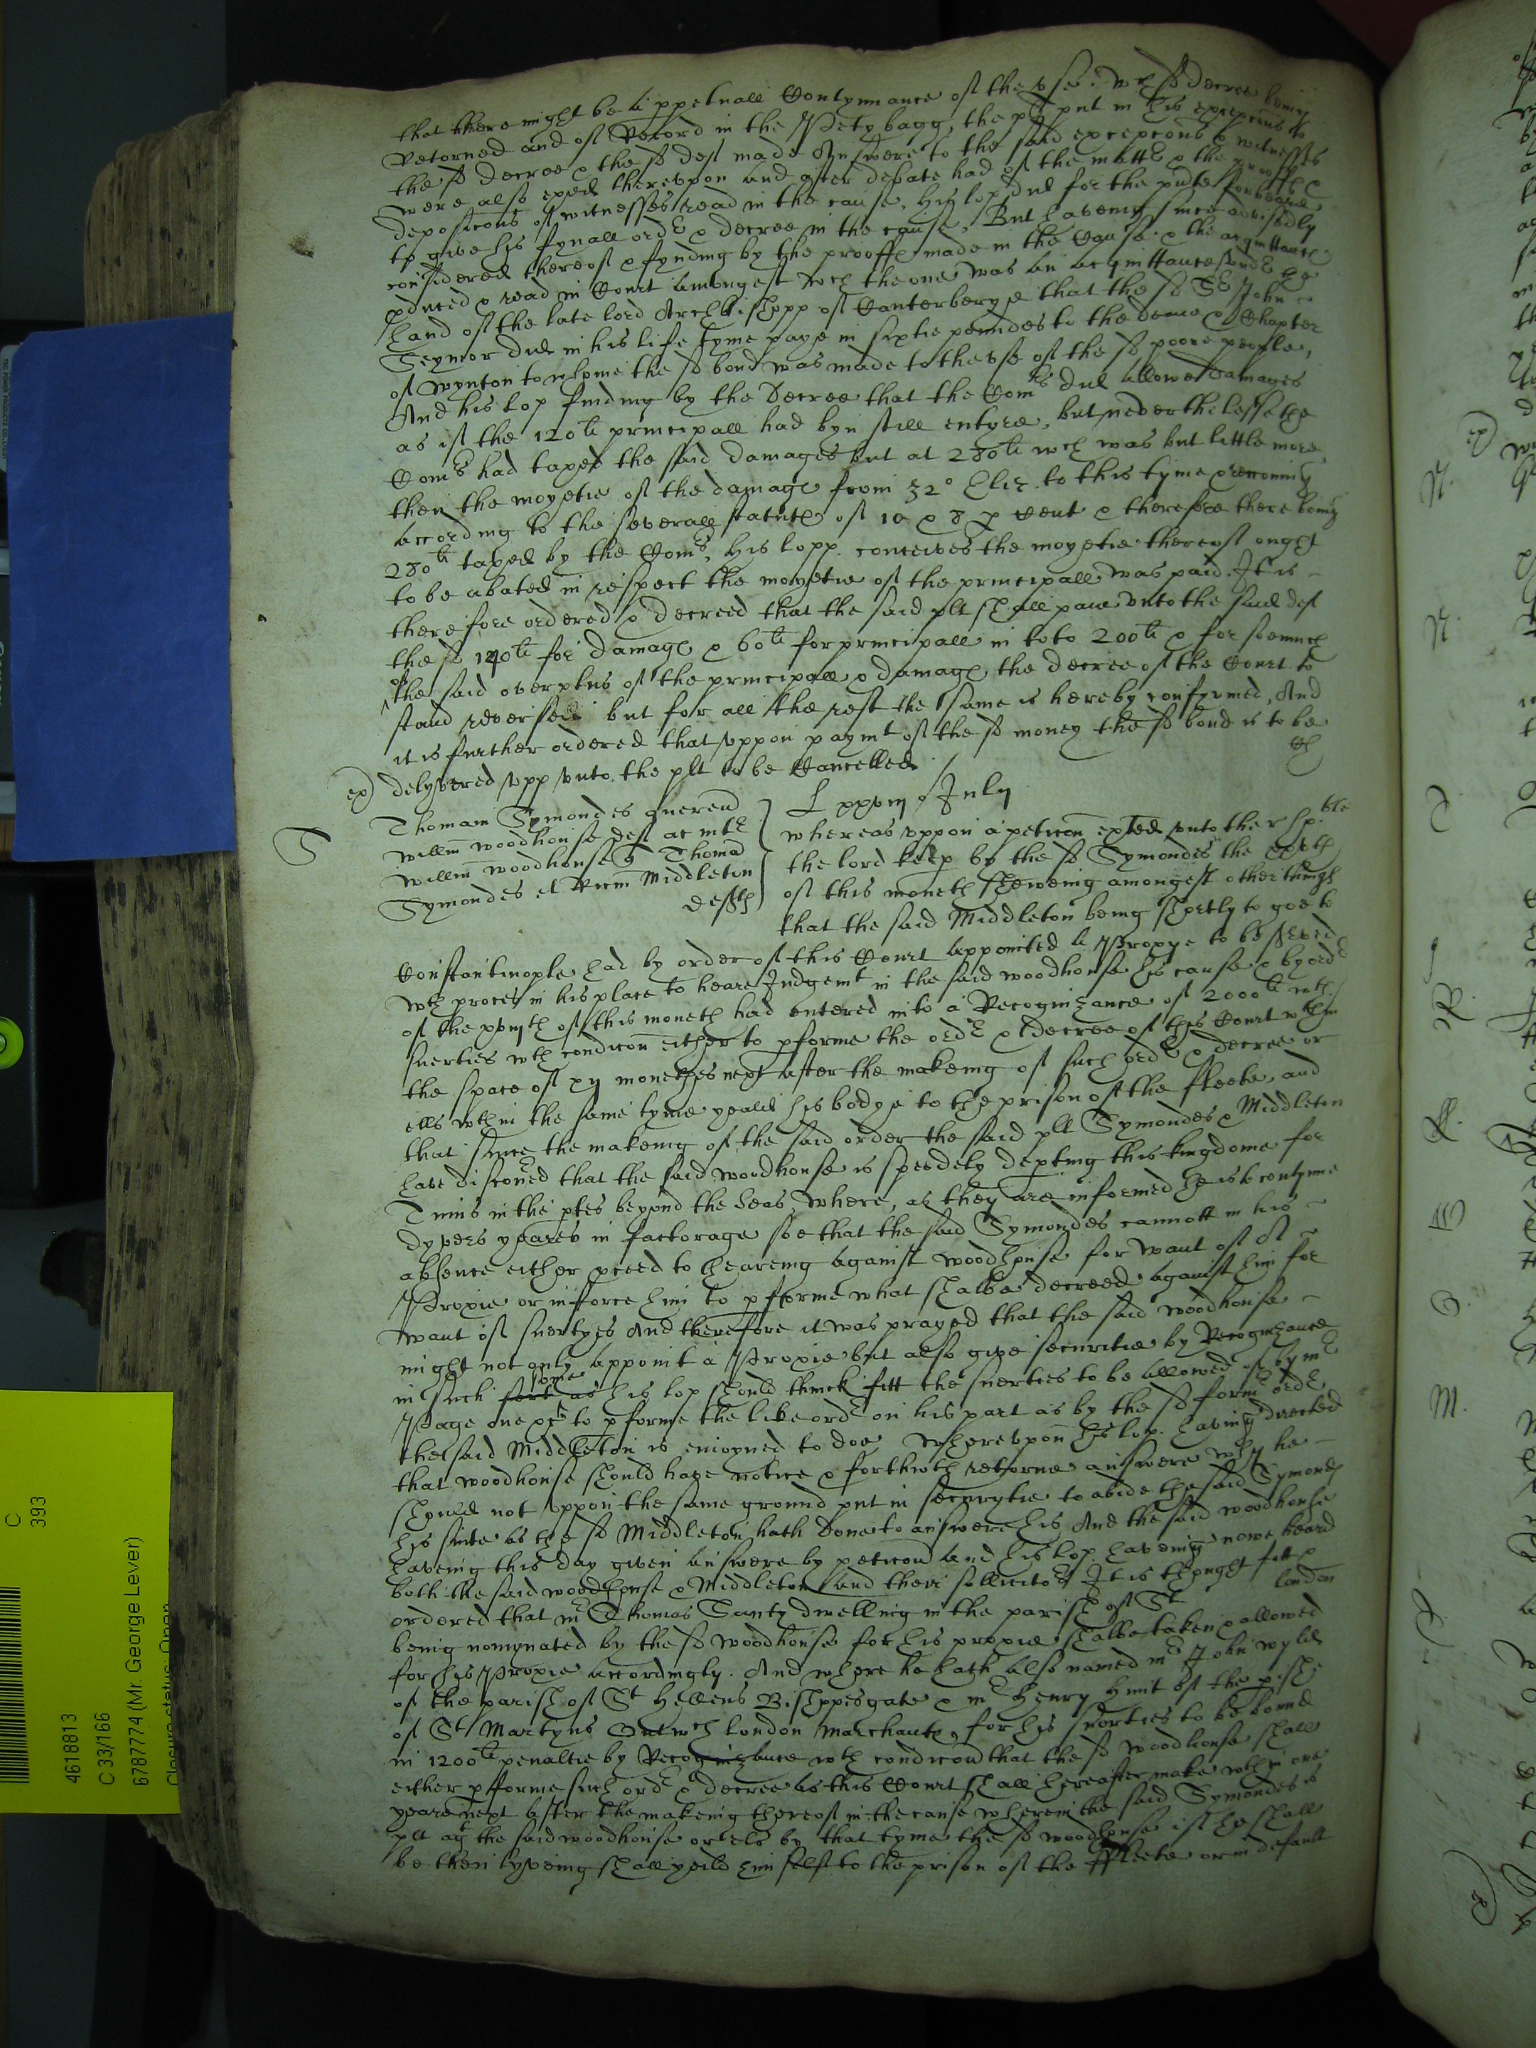 that there might be a ppetuall Contynuance of the use. wch sd decree being
Retorned and of Record in the Petybagg, the plt put in his excepcons to
the sd decree & the sd deft made Answere to the said excepcons & witnesses
were also exed thereupon and after debate had of the matter & the prooffe &
deposicons of witnesses read in the cause, his lop did for the pnte forbeare
to give his fynall order & decree in the cause, But haveing since advisedly
considered thereof & fynding by the prooffe made in the Cause & the acquittance
pduced & read in Court amongest wch the one was an acquittance under the
hand of the late lord Archbishopp of Canterberye that the sd Sr John
Seymor did in his life tyme paye in sixtie poundes to the Deane & Chapter
of Wynton to whome the sd bond was made to the use of the sd poore people,
And his lop finding by the Decree that the Comrs did allowe damages
as if the 120li principall had byn still entyre, but neverthelesse the
Comrs had taxed the said damages but at 280li wch was but little more
then the moyetie of the damage from 32o Eliz. to this tyme reconning
according to the severall statute of 10 & 8 p cent & therefore there being
280li taxed by the Comrs, his lopp conceives the moyetie thereof ought
to be abated in respect the moyetie of the principall was paid. It is
therefore ordered & decreed that the said plt shall paie unto the said deft
the sd 140li for damage & 60li for principall in toto 200li & for soemuch
of the said overplus of the principall & damage the decree of the Court to
stand reversed but for all the rest the same is hereby confirmed, And
it is further ordered that uppon paymt of the sd money the sd bond is to be
ex delyvered upp unto the plt to be Cancelled
S
Thomam Symondes queren
Willm Woodhouse deft ac intr
Willm Woodhouse Thoma
Symondes et Middleton
defts
July
whereas uppon a peticon unto the r. ho.ble
the lord keep by the sd Symondes the
of this moneth sheweing amongest other thinge
that the said Middleton being shortly to goe to
Constantinople had by order of this Court appointed a Proxye to be served
wth proces in his place to heare Judgemt in the said woodhouse his cause & by order
of the of this moneth had entered into a Recognizance of 2000li wth
suerties wth condicon either to pforme the order & decree of this Court wthin
the space of xij monethes next after the makeing of such order & decree or
ells wthin the same tyme yeald his bodye to the prison of the ffleete, and
that since the makeing of the said order the said plt Symondes & Middleton
have discoved that the said woodhouse is speedely depting this kingdome for
Tunis in the ptes beyond the Seas, where, as they are informed he is to contynue
dyvers yeares in factorage soe that the said Symondes cannott in his
absence either pceed to heareing against woodhouse for want of A
Proxie or inforce him to pforme what shalbe decreed against him for
want of suertyes And therefore it was prayed that the said woodhouse
might not only appoint a Proxie but also give securitie by Recognizance
in such some as his lop should thinck fitt the suerties to be allowed of by mr
Page one &c to pforme the like order on his part as by the sd former order
the said Middleton is enioyned to doe whereupon his lop. having directed
that woodhouse should have notice & forthwth retorne answere why he
should not uppon the same ground put in securytie to abide the said Symondes
his suite as the sd Middleton hath done to answere his And the said woodhouse
haveing this day given answere by peticon and his lop haveing nowe heard
both the said woodhouse & Middleton and their sollicitors It is thought fitt &
ordered that mr Thomas Santy dwelling in the parish of St London
being nomynated by the sd woodhouse for his proxie shalbe taken & allowed
for his Proxie accordingly. And where he hath also named mr John Wylde
of the parish of St Hellens Bishoppesgate & mr Henry Hunt of the pish
of St Martyns Outwch london Marchaunte, for his suerties to be bound
in 1200li penaltie by Recognizance wth condicon that the sd woodhouse shall
either pforme such order & decree as this Court shall hereafter make wthin one
yeare next after the makeing thereof in the cause wherein the said Symondes is
plt agt the said woodhouse or els by that tyme the sd woodhouse if he shall
be then lyveing shall yeild himself to the prison of the ffleete or in default
C
393
4618813
C 33/166
6787774 (Mr. George Lever)
Closure status: Open